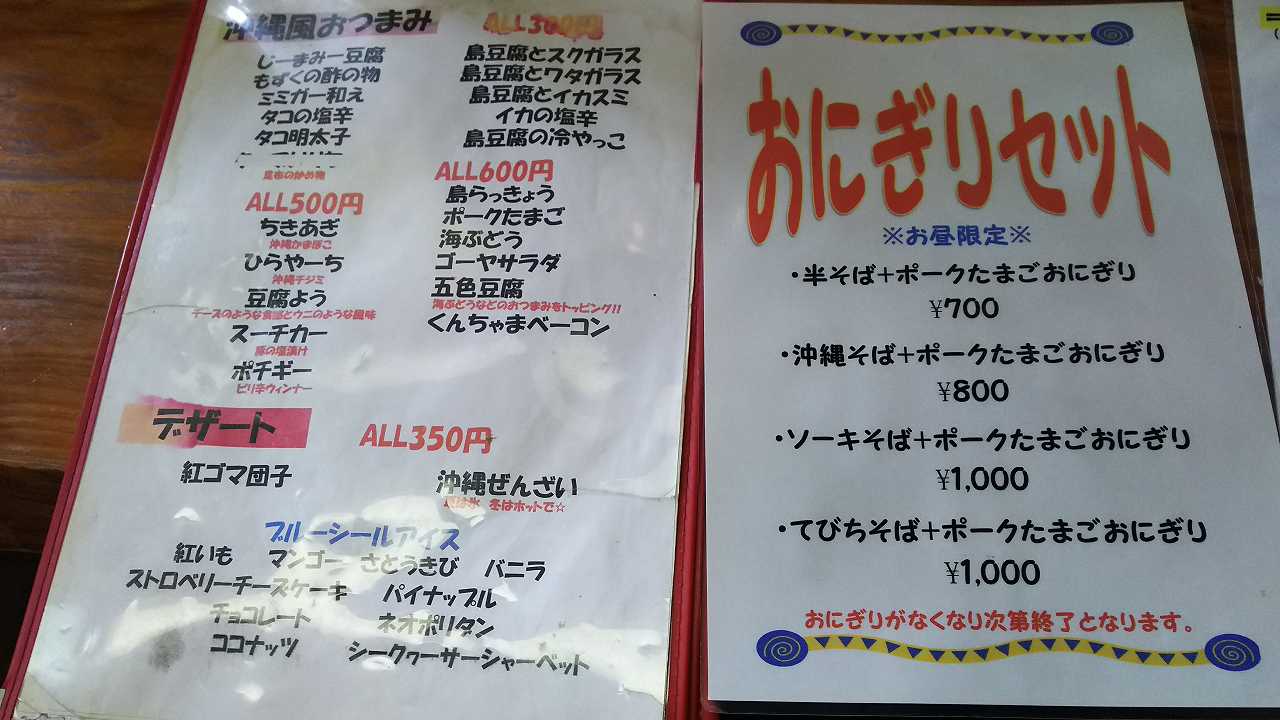 沖縄風おつまみ
ALL300円
じーまみー豆腐
もずくの酢の物
ミミガー和え
タコの塩辛
タコ明太子
昆布の炒め物
島豆腐とスクガラス
島豆腐とワタガラス
島豆腐とイカスミ
イカの塩辛
島豆腐の冷やっこ
ALL500円
ちきあぎ
沖縄かまぼこ
ひらやーち
沖縄チジミ
豆腐よう
チーズのような食感とウニのような風味
スーチカー
豚の塩漬け
ポチギー
ピリ辛ウィンナー
ALL600円
島らっきょう
ポークたまご
海ぶどう
ゴーヤサラダ
五色豆腐
海ぶどうなどのおつまみをトッピング!!
くんちゃまベーコン
デザート
ALL350円
紅ゴマ団子
沖縄ぜんざい
夏は氷 冬はホットで☆
ブルーシールアイス
紅いも マンゴー さとうきび バニラ
ストロベリーチーズケーキ パイナップル
チョコレート ネオポリタン
ココナッツ シークヮーサーシャーベット
おにぎりセット
※お昼限定※
・半そば+ポークたまごおにぎり
¥700
・沖縄そば+ポークたまごおにぎり
¥800
・ソーキそば+ポークたまごおにぎり
¥1,000
・てびちそば+ポークたまごおにぎり
¥1,000
おにぎりがなくなり次第終了となります。